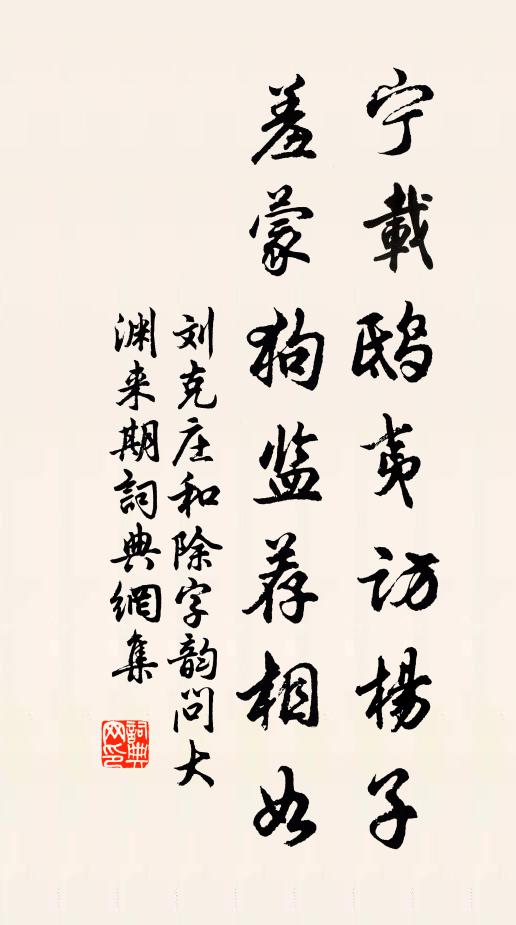 宁載鸱夷访楊子
羞蒙狗监荐相如
刘克庄和除字韵问大
渊来期詞典網集
詞典
网印